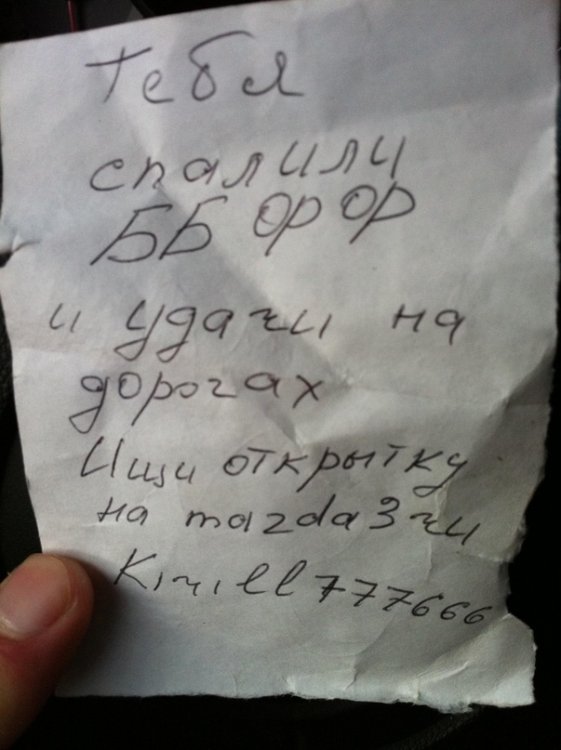 Тебя
спалили
ББ ОР ОР
и удачи на
дорогах
Ищи открытку
на mazda3чи
Kirill777666